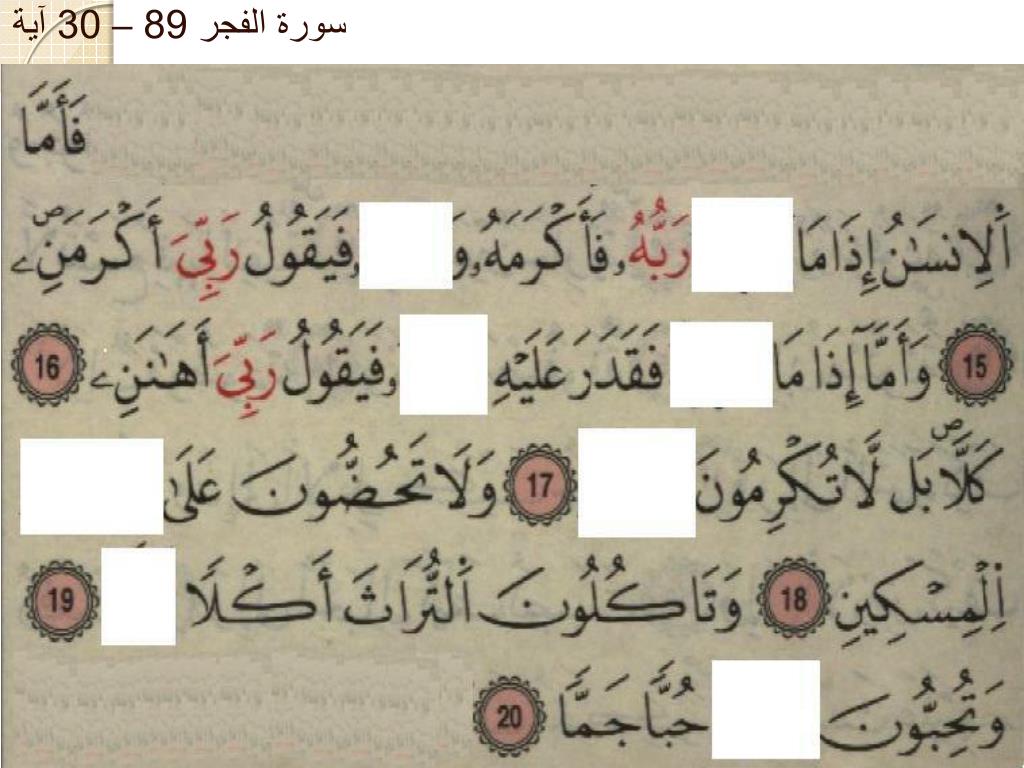 سورة الفجر 89 – 30 آية
فَأَمَّا
اَ۬لِانسَٰنُ إِذَا مَا رَبُّهُۥ فَأَكْرَمَهُۥ وَ ۥ فَيَقُولُ رَبِّيَ أَكْرَمَنِۦ
15 وَأَمَّآ إِذَا مَا فَقَدَرَ عَلَيْهِ ۥ فَيَقُولُ رَبِّيَ أَهَٰنَنِۦ 16
كَلَّا بَل لَّا تُكْرِمُونَ 17 وَلَا تَحُضُّونَ عَلَىٰ
اِ۬لْمِسْكِينِ 18 وَتَاكُلُونَ اَ۬لتُّرَاثَ أَكْلًا 19
وَتُحِبُّونَ حُبًّا جَمًّا 20